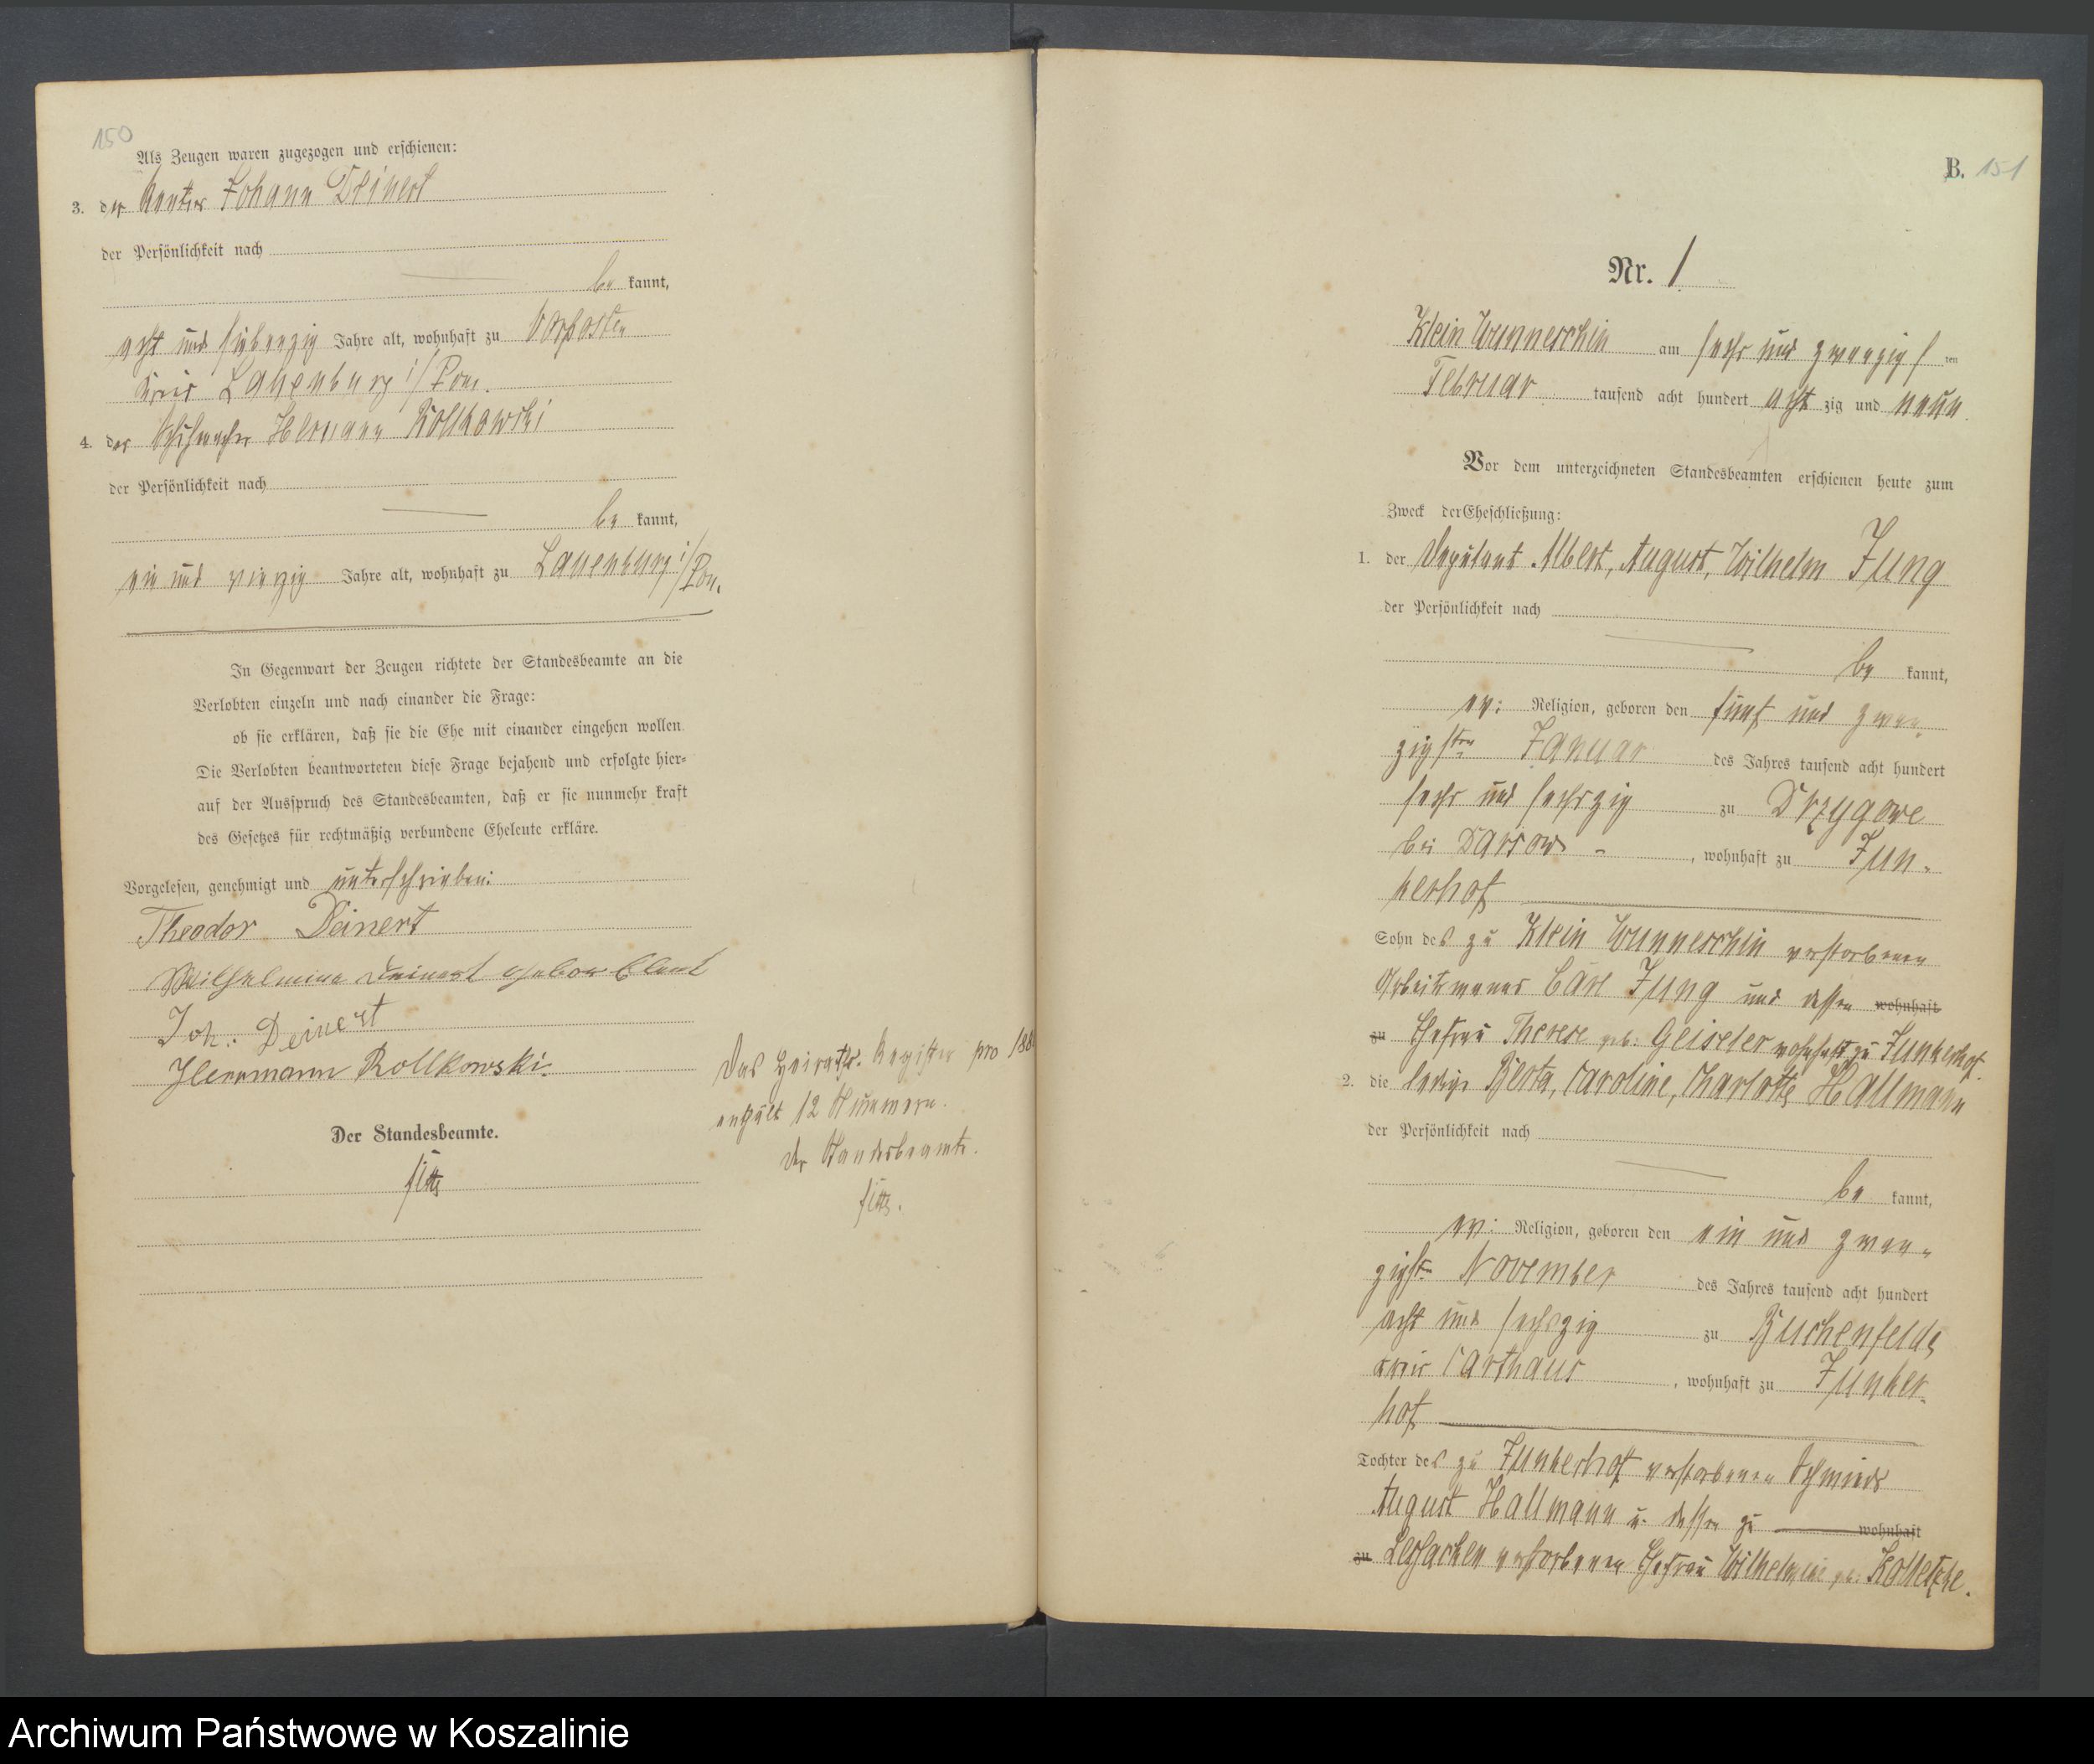 150
Als Zeugen waren zugezogen und erschienen:
3. der Rentier Johann Deinert
der Persönlichkeit nach
be kannt,
acht und siebenzig Jahre alt, wohnhaft zu Vorposten
Kreis Lauenburg i/Pom.
4. der Schuhmacher Hermann Rollkowski
der Persönlichkeit nach
be kannt,
ein und vierzig Jahre alt, wohnhaft zu Lauenburg i/Pom.
In Gegenwart der Zeugen richtete der Standesbeamte an die
Verlobten einzeln und nach einander die Frage:
ob sie erklären, daß sie die Ehe mit einander eingehen wollen.
Die Verlobten beantworteten diese Frage bejahend und erfolgte hier-
auf der Ausspruch des Standesbeamten, daß er sie nunmehr kraft
des Gesetzes für rechtmäßig verbundene Eheleute erkläre.
Vorgelesen, genehmigt und unterschrieben:
Theodor Deinert
Wilhelmine Deinert gebor
Joh: Deinert
Herrmann Rollkowski.
Der Standesbeamte.
Das Heirats-Register pro 188
enthält 12 Nummern.
Der Standesbeamte.
B. 151
Nr. 1
Klein Wunneschin am sechs und zwanzigsten
Februar tausend acht hundert acht zig und neun
Vor dem unterzeichneten Standesbeamten erschienen heute zum
Zweck der Eheschließung:
1. der Deputant Albert, August, Wilhelm Jung
der Persönlichkeit nach
be kannt,
ev: Religion, geboren den fünf und zwan-
zigsten Januar des Jahres tausend acht hundert
sechs und sechszig zu Drzygowe
bei Darsow -, wohnhaft zu Jun-
kerhof
Sohn des zu Klein Wunneschin verstorbenen
Arbeitsmannes Carl Jung und dessen wohnhaft
zu Ehefrau Therese geb: Geiseler wohnhaft zu Junkerhof.
2. die ledige Berta, Caroline, Charlotte Hallmann
der Persönlichkeit nach
be kannt,
ev: Religion, geboren den ein und zwan-
zigsten November des Jahres tausend acht hundert
acht und sechszig zu Buchenfelde
Kreis Carthaus, wohnhaft zu Junker-
hof
Tochter des zu Junkerhof verstorbenen Schmieds
August Hallmann u. dessen zu wohnhaft
zu verstorbenen Ehefrau Wilhelmine geb:
Archiwum Państwowe w Koszalinie